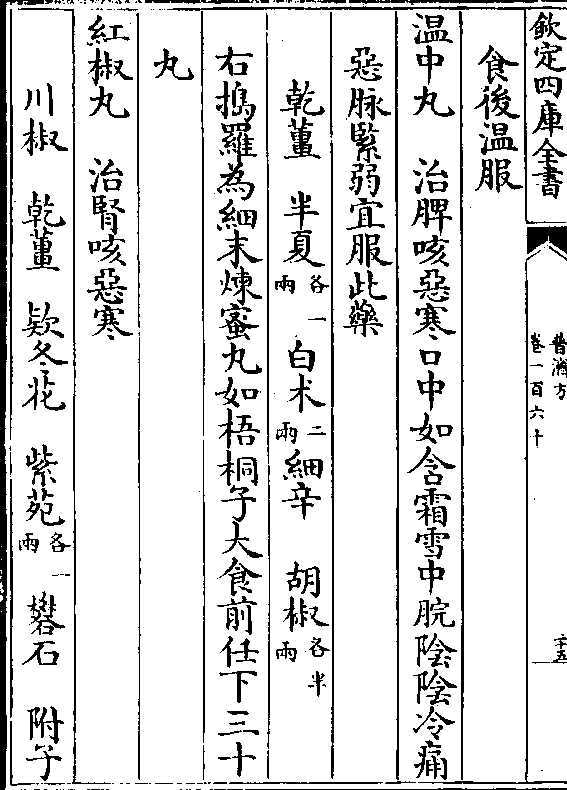 欽定四庫全書
普濟方
卷一百六十
二十五
食後温服
温中丸　治脾咳惡寒口中如含霜雪中脘隂隂冷痛
惡脉緊弱宜服此藥
乾薑　半夏各一兩　白术二兩　細辛　胡椒各半兩
右搗羅為細末煉蜜丸如梧桐子大食前任下三十
丸
紅椒丸　治腎咳惡寒
川椒　乾薑　欵冬花　紫苑各一兩　礬石　附子